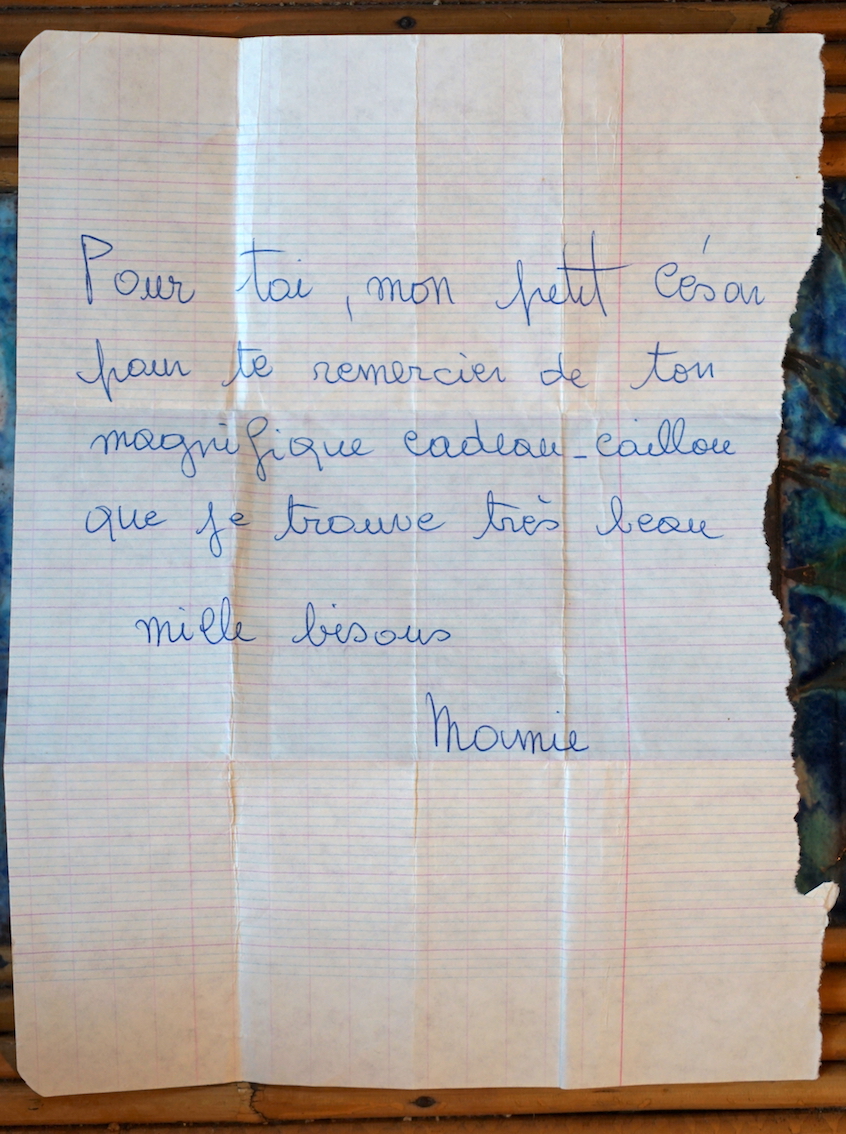 Pour toi, mon petit César
pour te remercier de ton
magnifique cadeau-caillou
que je trouve très beau
mille bisous
Mamie